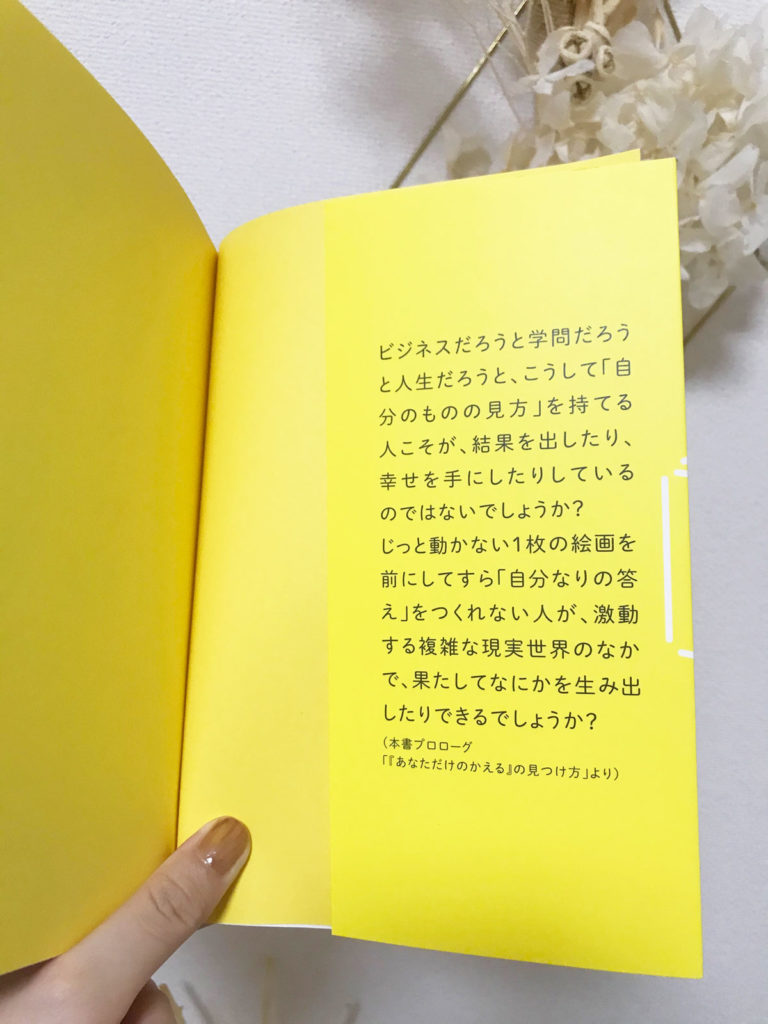 ビジネスだろうと学問だろう
と人生だろうと、こうして「自
分のものの見方」を持てる
人こそが、結果を出したり、
幸せを手にしたりしている
のではないでしょうか?
じっと動かない1枚の絵画を
前にしてすら「自分なりの答
え」をつくれない人が、激動
する複雑な現実世界のなか
で、果たしてなにかを生み出
したりできるでしょうか?
(本書プロローグ
「『あなただけのかえる』の見つけ方」より)